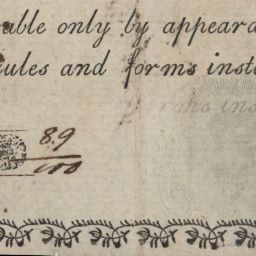 able only by appeara
ules and forms insta
89
100